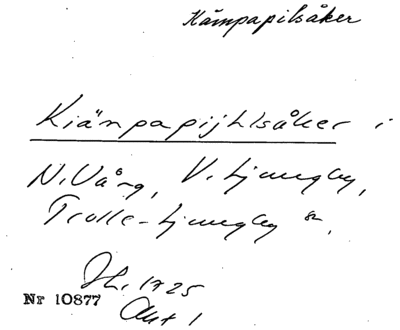 Kämpapilsåker
Kiänpapijhlsåker i
N. Vång, V. Ljungby,
Trolle-Ljungby sn.
Hr. 1725
Nr 10877
Akt 1